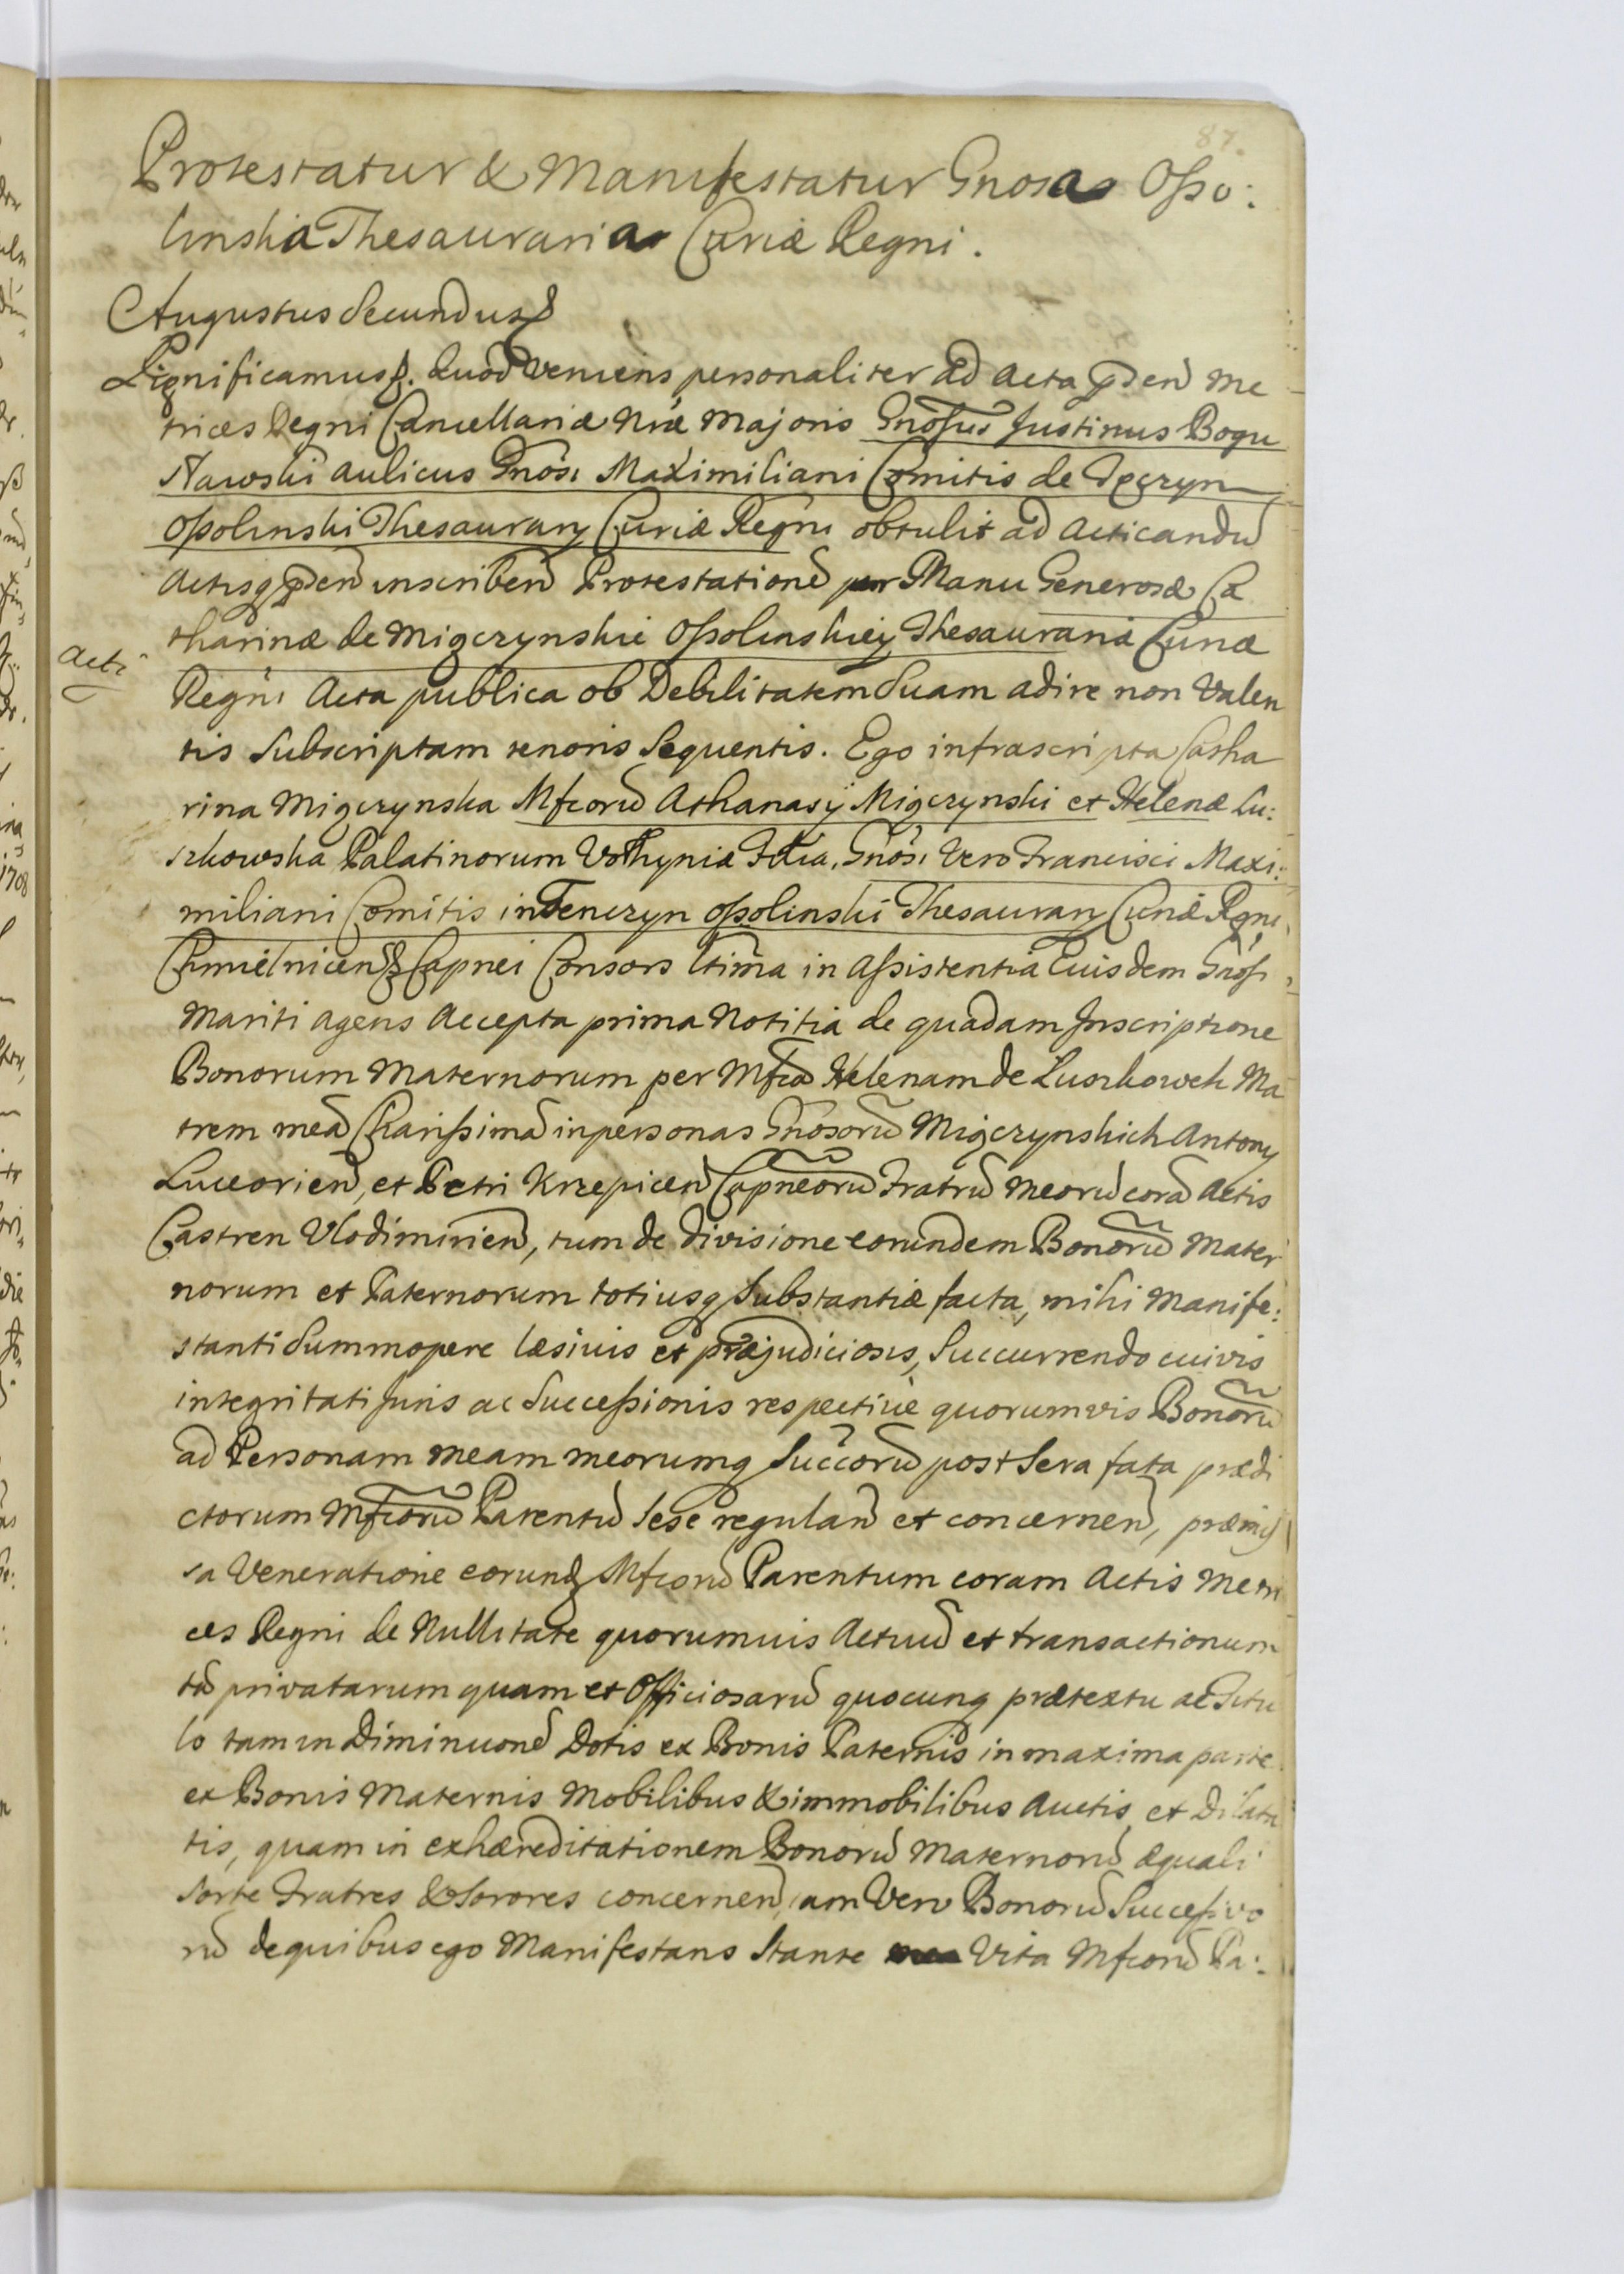 87.
Protestatur & Manifestatur Gnosa Osso:
linska Thesauraria Curiæ Regni.
Augustus Secundus
Significamus. Quod veniens personaliter ad acta pñden Me
trices Regni Cancellariæ Nræ Majoris Gnosus Justinus Bogu
sławski aulicus Gnosi Maximiliani Comitis de Tęczyn
Ossolinski Thesaurarij Curiæ Regni obtulit ad acticandū
actisq pñden inscriben Protestationē per Manu Generosæ Ca
tharinæ de Migczynskie Ossolinskiey Thesaurariæ Curiæ
Acti
Regni Acta publica ob Debilitatem Suam adire non Valen
tis Subscriptam tenoris Sequentis. Ego infrascripta Catha
rina Migczynska Mfcorū Athanasij Migczynski et Helenæ Lu:
szkowska Palatinorum Volhyniæ Filia, Gnosi Vero Francisci Maxi:
miliani Comitis in Tenczyn Ossolinski Thesaurarij Curiæ Regni
Chmielnicen Capnei Consors ltima in Assistentia Eiusdem Gnosi
Mariti Agens Accepta prima Notitia de quadam Inscriptione
Bonorum Maternorum per Mfcā Helenam de Luszkowch Ma
trem meā Charissimā in personas Gnosorū Migczynskich Antonij
Luceorien, et Petri Krzepicen Capneorū Fratrū Meorū corā Actis
Castren Vlodimirien, tum de divisione eorundem Bonorū Mater
norum et Paternorum totiusq Substantiæ facta, mihi Manife:
stanti Summopere læsivis et præjudiciosis, Succurrendo cuivis
integritati Juris ac Successionis respective quorumvis Bonorū
ad Personam meam meorumq Succorū post Sera fata prædi
ctorum Mfcorū Parentū Sese regulan et concernen, præmis
sa Veneratione eorund Mfcorū Parentum coram Actis Metri
ces Regni de Nullitate quorumuis Actuū et transactionum
tā privatarum quam et Officiosarū quocunq prætextu ac Titu
lo tam in Diminuonē Dotis ex Bonis Paternis in maxima parte
ex Bonis Maternis Mobilibus & immobilibus Auctis, et Dilata
tis, quam in exhæreditationem Bonorū Maternorū æquali
Sorte Fratres & Sorores concernen, iam Vero Bonorū Successivo
rū de quibus ego Manifestans Stante Vita Mfcorū Pa: